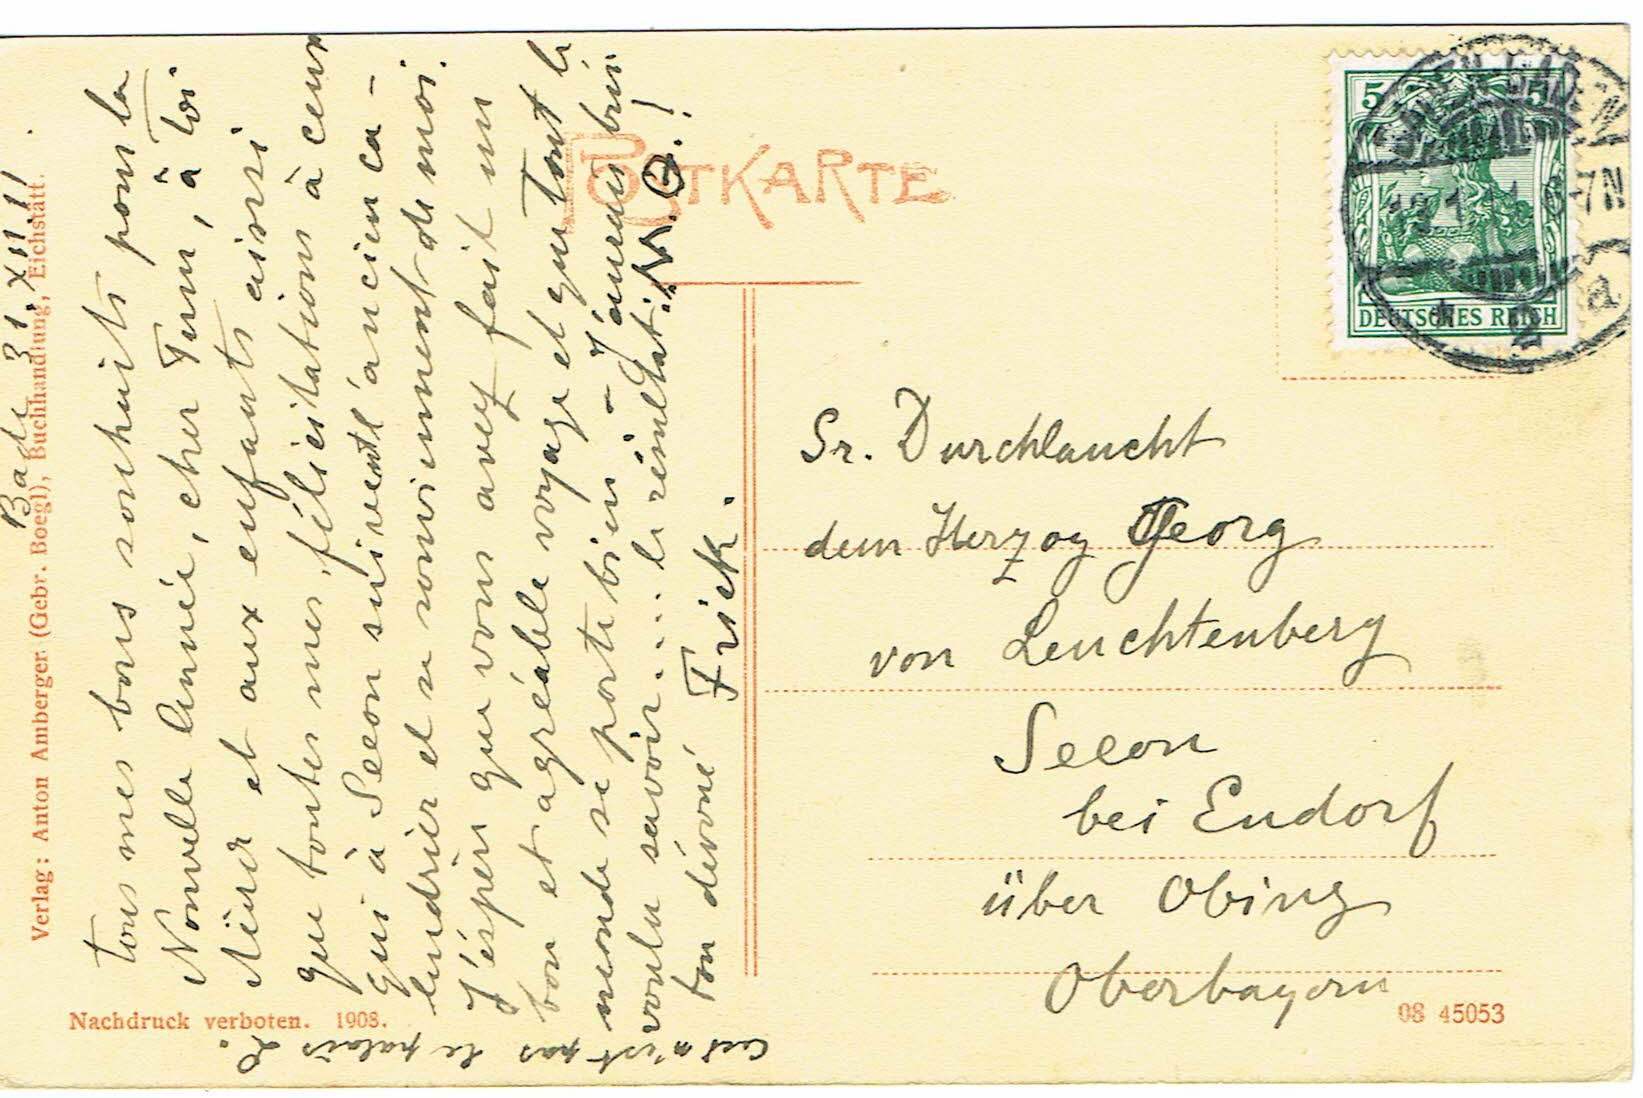 Bade 31. XII!!
Tous mes bons souhaits pour la
Nouvelle Année, cher Juni, à Toi
et aux enfants ainsi
que toutes mes félicitations à ceux
qui à Seeon suivent l'ancien ca-
lendrier et se souviennent de moi.
J'éspèr que vous avez fait un
bon et agréable voyage et que tout le
monde se porte bien – J'aurais bien
voulu savoir.... le résultat!!
ton dévoué Frick.
Cect n'est pas le palais L.
POSTKARTE
DEUTSCHES REICH
5
5
BADEN-BADEN
6-7N
2 a
Sr. Durchlaucht
dem Herzog Georg
von Leuchtenberg
Seeon
bei Endorf
über Obing
Oberbayern
Verlag: Anton Amberger (Gebr. Boegl), Buchhandlung, Eichstätt.
Nachdruck verboten. 1908.
08 45053